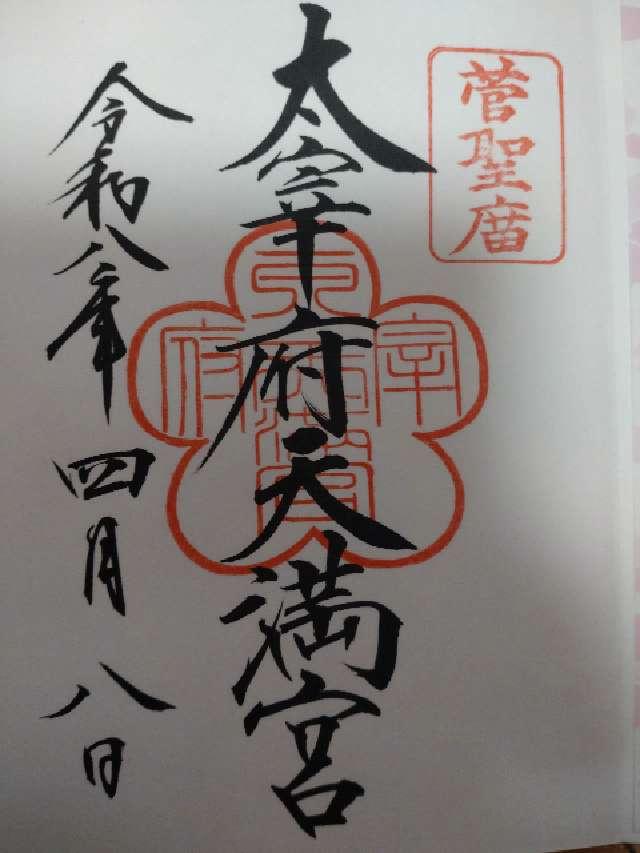 菅聖庿
太宰府天満宮
令和八年四月八日